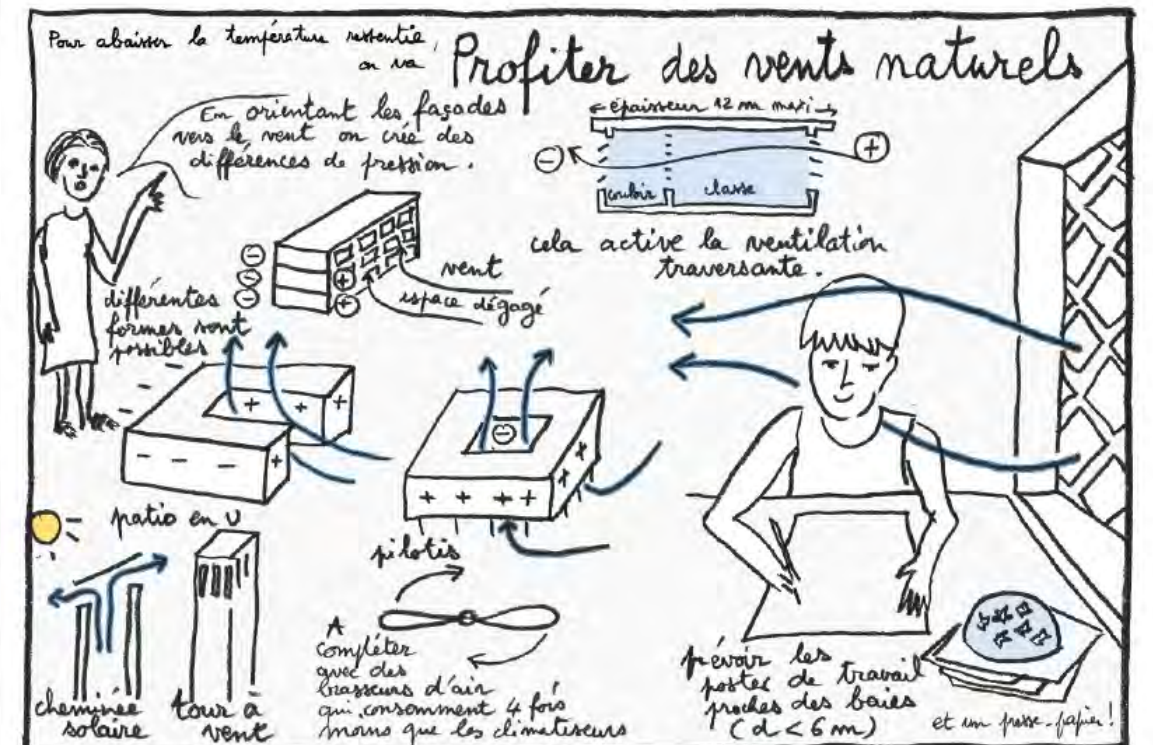 Pour abaisser la température ressentie,
on va
Profiter des vents naturels
En orientant les façades
vers le vent on crée des
différences de pression.
épaisseur 12 m maxi
-
+
couloir
classe
cela active la ventilation
traversante.
vent
espace dégagé
-
-
-
+
+
différentes
formes sont
possibles
- - -
+ + +
- - - +
patio en U
-
+ + + +
+ + +
pilotis
cheminée
solaire
tour à
vent
A
compléter
avec des
brasseurs d'air
qui consomment 4 fois
moins que les climatiseurs
prévoir les
postes de travail
proches des baies
(d < 6 m)
et un presse-papier!